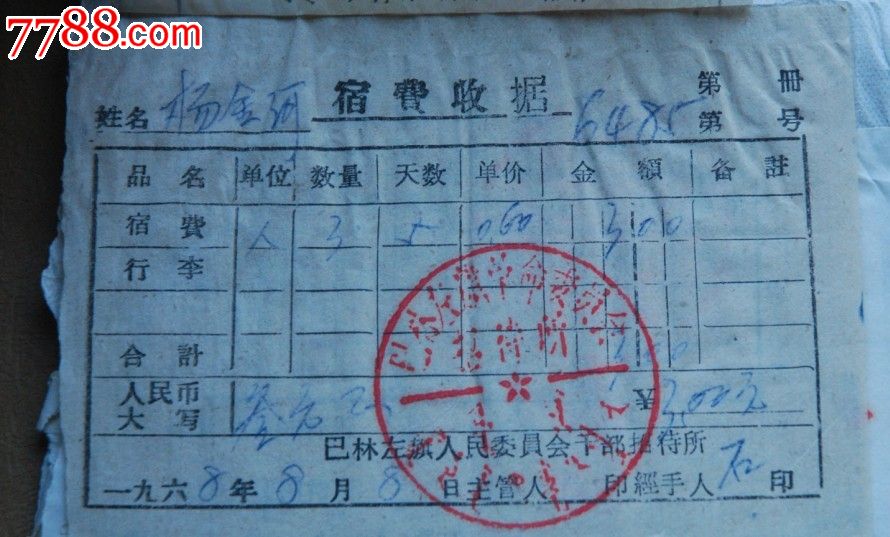 7788.com
宿費收据
第 冊
姓名 杨金河 6485 第 号
品名 单位 数量 天数 单价 金額 备註
宿費 人 3 5 0.60 3 0 0
行李
合計 3 0 0
人民币
大写 叁元 3.00元
巴林左旗人民委員会干部招待所
一九六8年8月8日 主管人 印 經手人 石 印
招待所